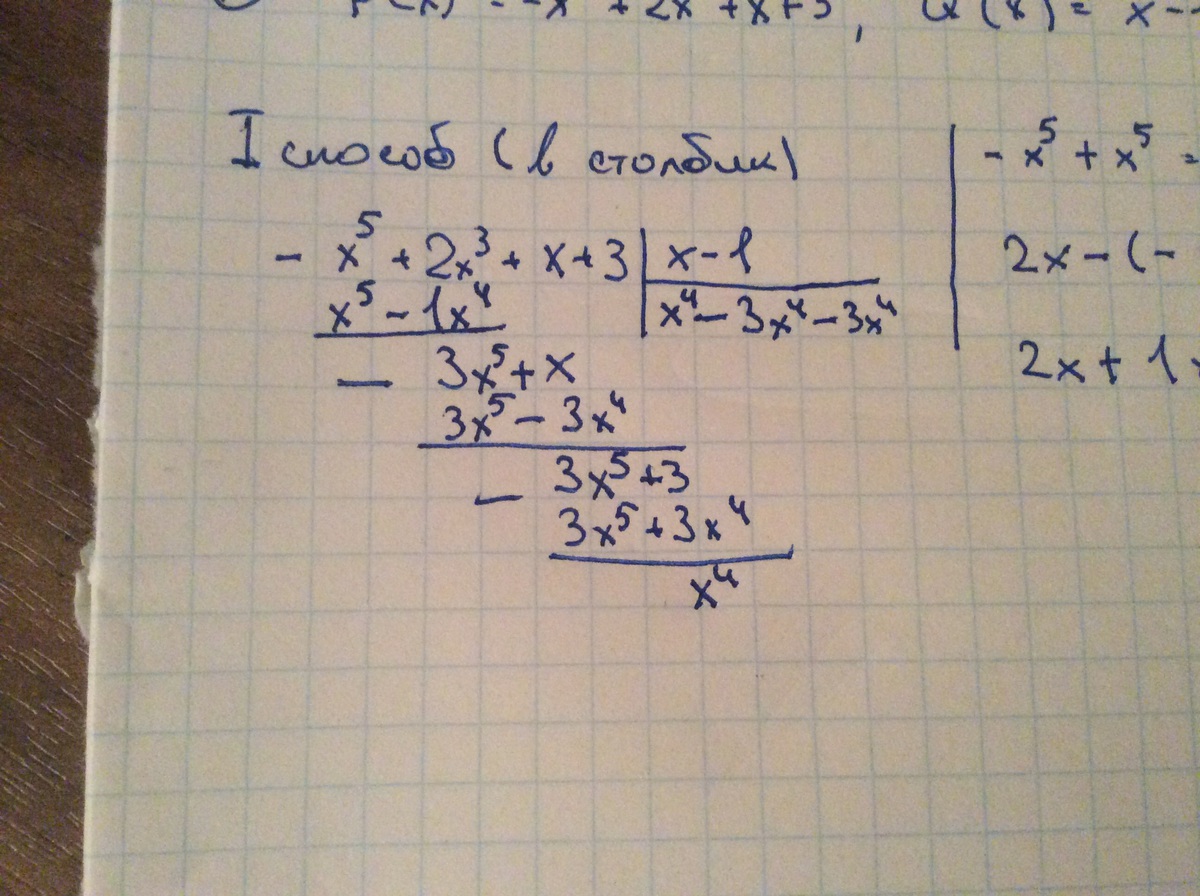 P(x) = -x + 2x + x + 3, Q(x) = x -
I способ (в столбик)
- x⁵ + 2x³ + x + 3 | x - 1
x⁵ - 1x⁴
x⁴ - 3x⁴ - 3x⁴
- 3x⁵ + x
3x⁵ - 3x⁴
- 3x⁵ + 3
3x⁵ + 3x⁴
x⁴
- x⁵ + x⁵ =
2x - (-
2x + 1